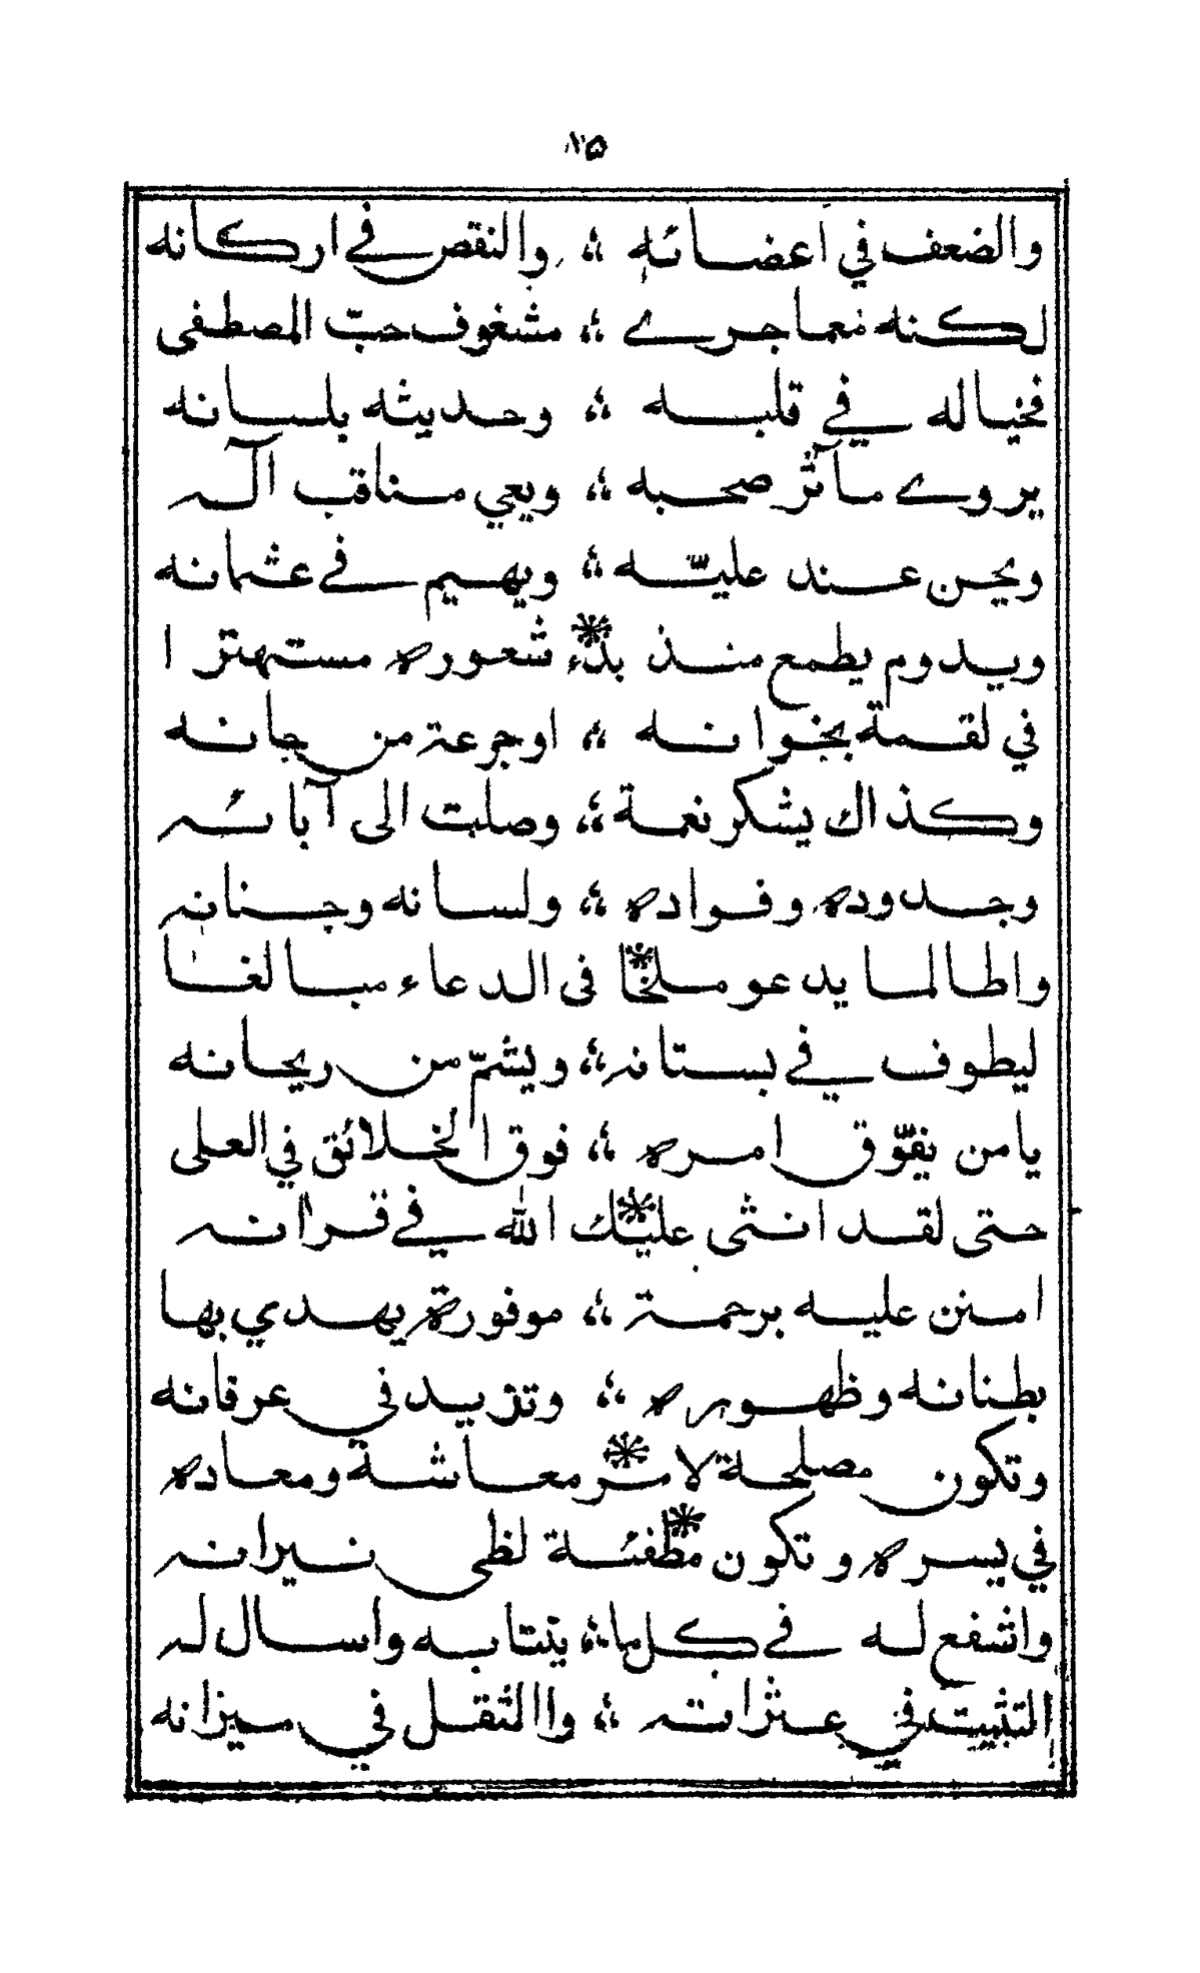 ١٥
والضعف في اعضائه ؛ والنقص في اركانه
لكنه مهما جرے ؛ مشغوف حبّ المصطفى
فخياله في قلبه ؛ وحديثه بلسانه
يروے مآثر صحبه ؛ ويعي مناقب آله
ويحن عند عليّه ؛ ويهيم في عثمانه
ويدوم يطمع منذ بدء شعوره مستهترا
في لقمة بخوانه ؛ اوجرعة من جانه
وكذاك يشكر نعمة ؛ وصلت الى آبائه
وجدوده وفواده ؛ ولسانه وجنانه
واطالما يدعو ملحّا في الدعاء مبالغا
ليطوف في بستانه ؛ ويشمّ من ريحانه
يا من يفوّق امره ؛ فوق الخلائق في العلى
حتى لقد اثنى عليك الله في قرانه
امنن عليه برحمة ؛ موفورة يهدي بها
بطنانه وظهوره ؛ وتزيد في عرفانه
وتكون مصلحة لامر معاشة ومعاده
في يسره وتكون مطفئة لظى نيرانه
واشفع له في كل ما ؛ ينتابه واسال له
التثبيت في عثراته ؛ واالثقل في ميزانه